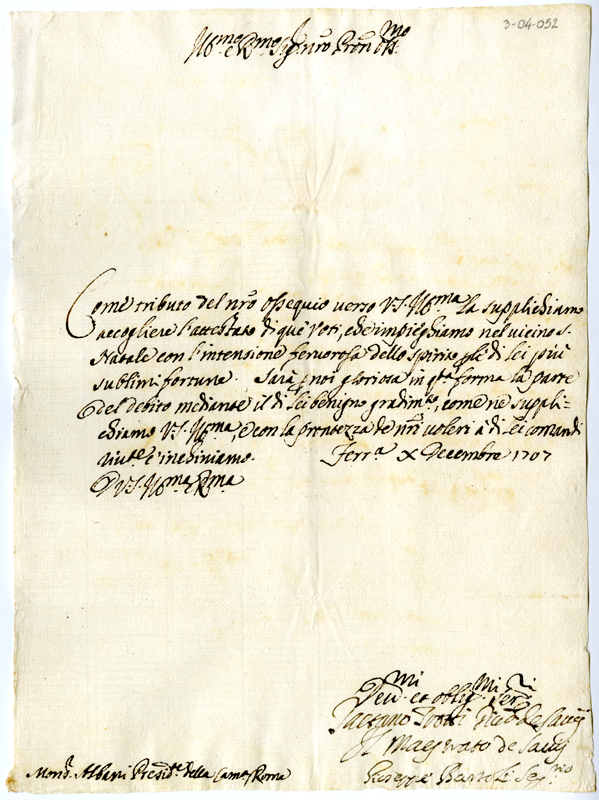 3-04-052
Ill.mo e R.mo Sig.r nr̃o Prõn Oss.mo
Come tributo del nr̃o ossequio verso V.S. Ill.ma La supplichiamo
accogliere l'attestato di que' Voti, che impieghiamo nel vicino S.
Natale con l'intensione fervorosa dello spirito p̱ le di lei più
sublimi fortune. Sarà p̱ noi gloriosa in q.ta forma la parte
del debito mediante il di Lei benigno gradim.to, come ne suppli-
chiamo V.S. Ill.ma, e con la prontezza de nr̃i voleri a di Lei comandi
riv.te c'inchiniamo. Ferr.a X Decembre 1707
D V.S. Ill.ma e R.ma
Dev.mi et oblig.mi Ser.ri
Gaetano Trotti Giud. de Savij
Il Maestrato de Savij
Giuseppe Bartoli Seg.rio
Mons.r Albani Presid.te della Cam.a Roma